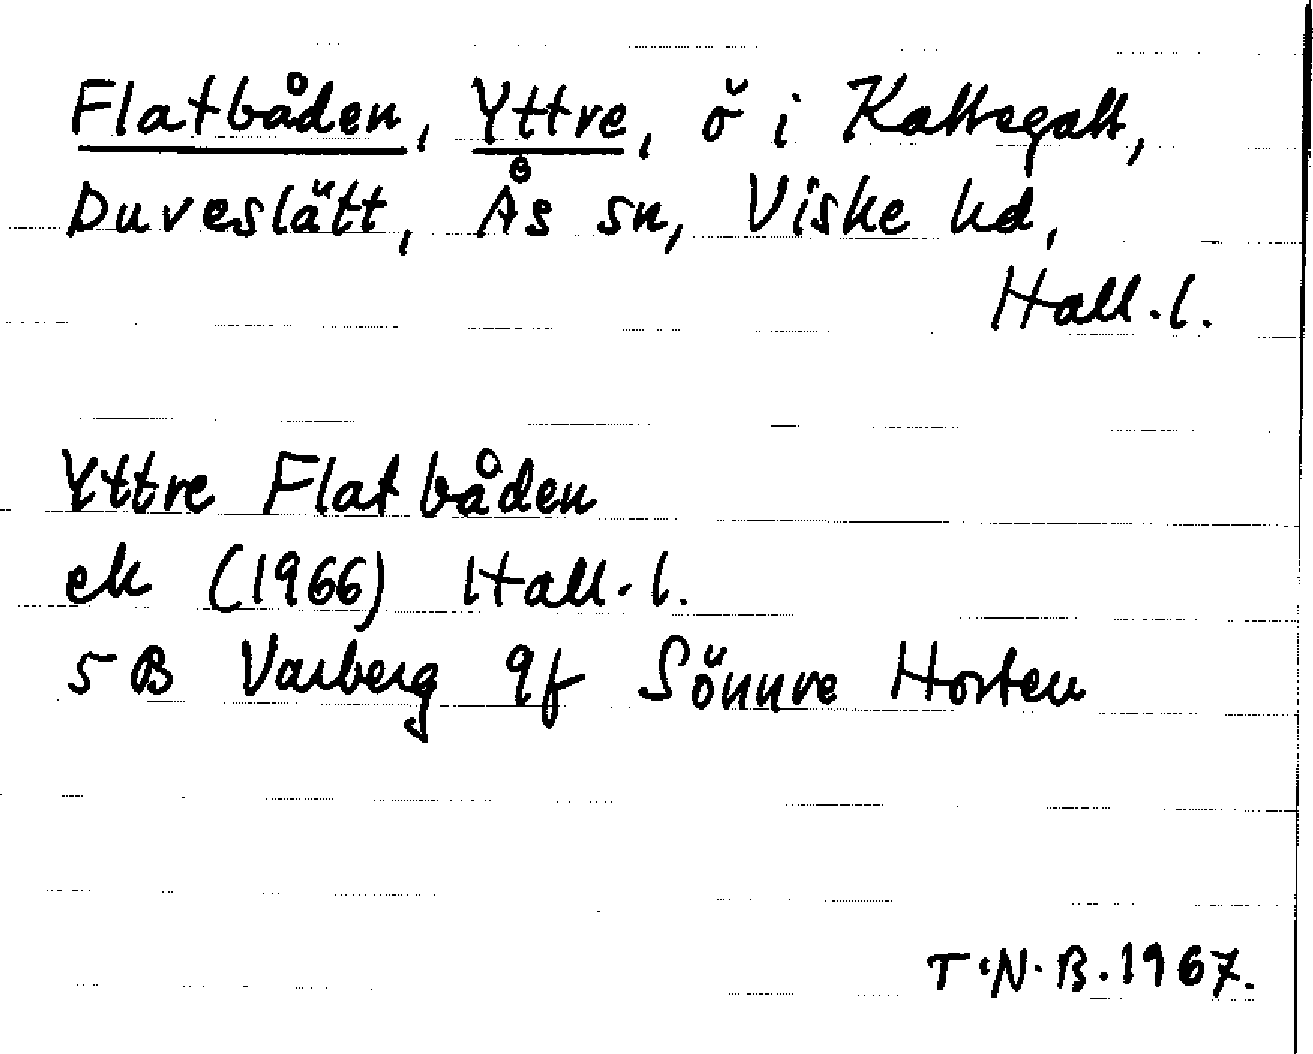 Flatbåden, Yttre, ö i Kattegatt,
Duveslätt, Ås sn, Viske hd,
Hall.l.
Yttre Flatbåden
ek (1966) Hall.l.
5 B Varberg 9f Sönnre Horten
T.N.B.1967.